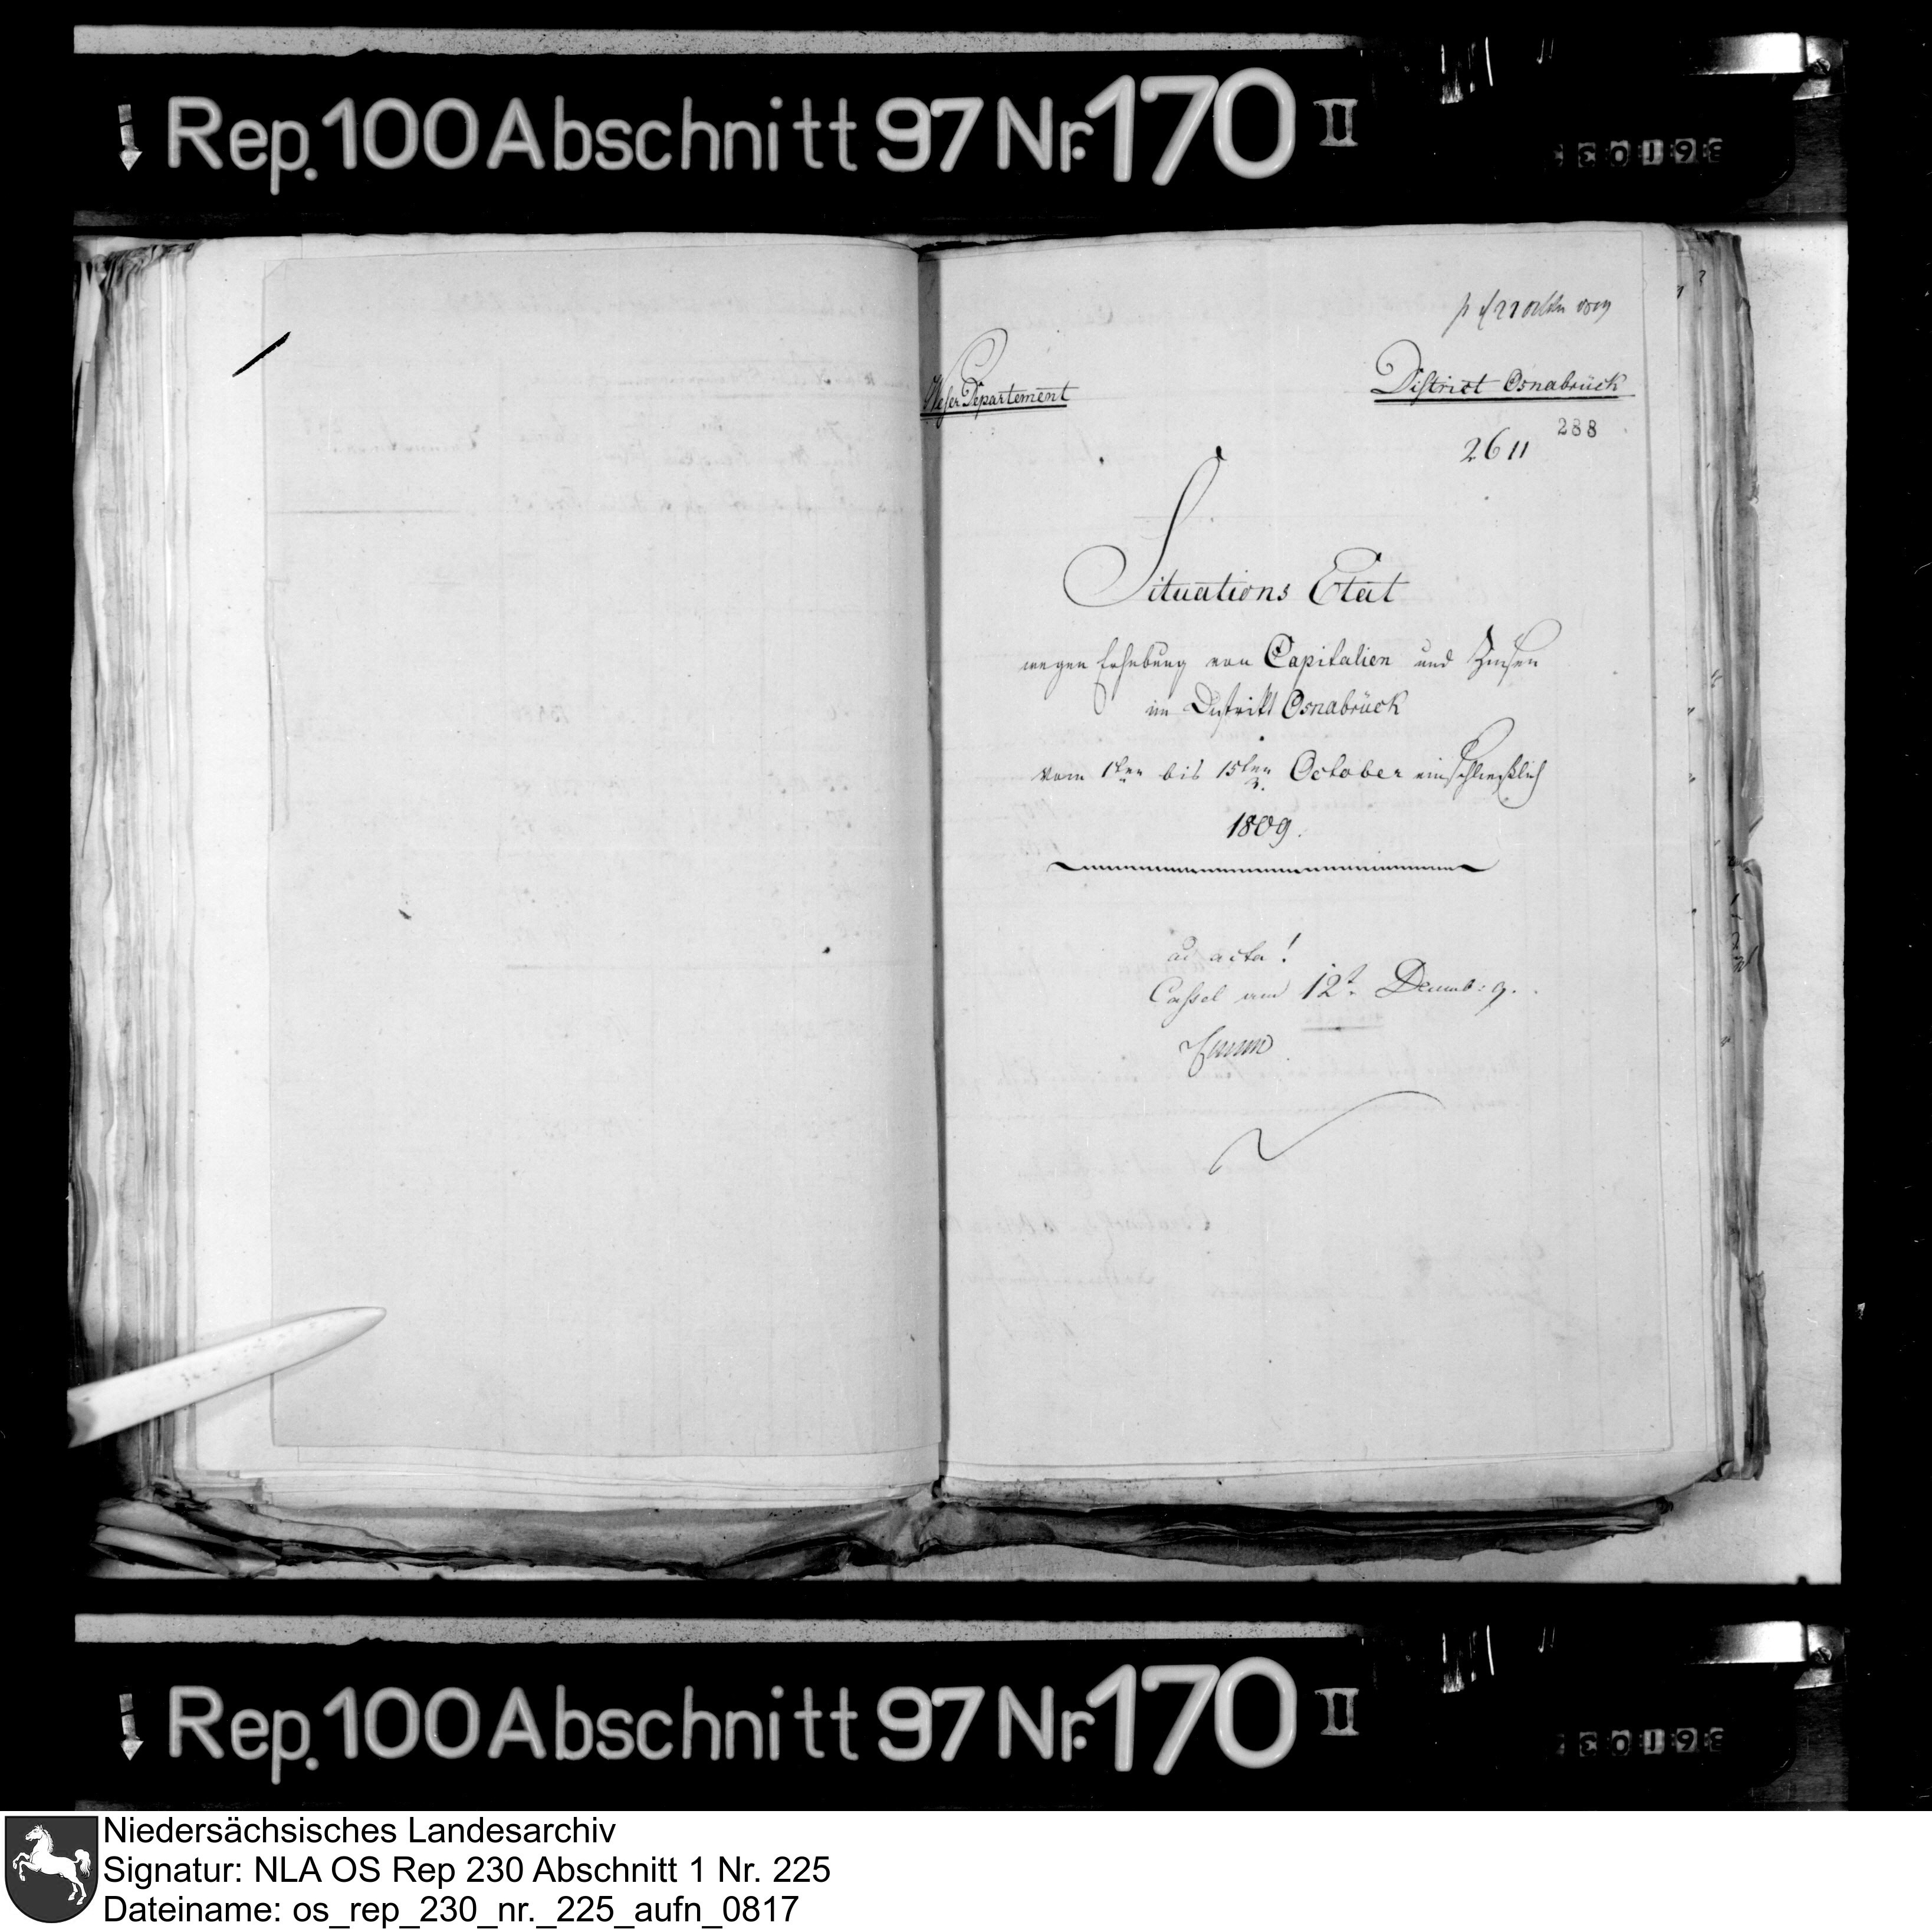 Rep. 100 Abschnitt 97 Nr. 170 II
Weser Departement
District Osnabrück
288
2611
Situations Etat
wegen Erhebung von Capitalien und Zinsen
im Distrikt Osnabrück
vom 1ten bis 15ten October einschließlich
1809.
ad acta!
Cassel am 12t. Decemb: 9.
Rep. 100 Abschnitt 97 Nr. 170 II
Niedersächsisches Landesarchiv
Signatur: NLA OS Rep 230 Abschnitt 1 Nr. 225
Dateiname: os_rep_230_nr._225_aufn_0817